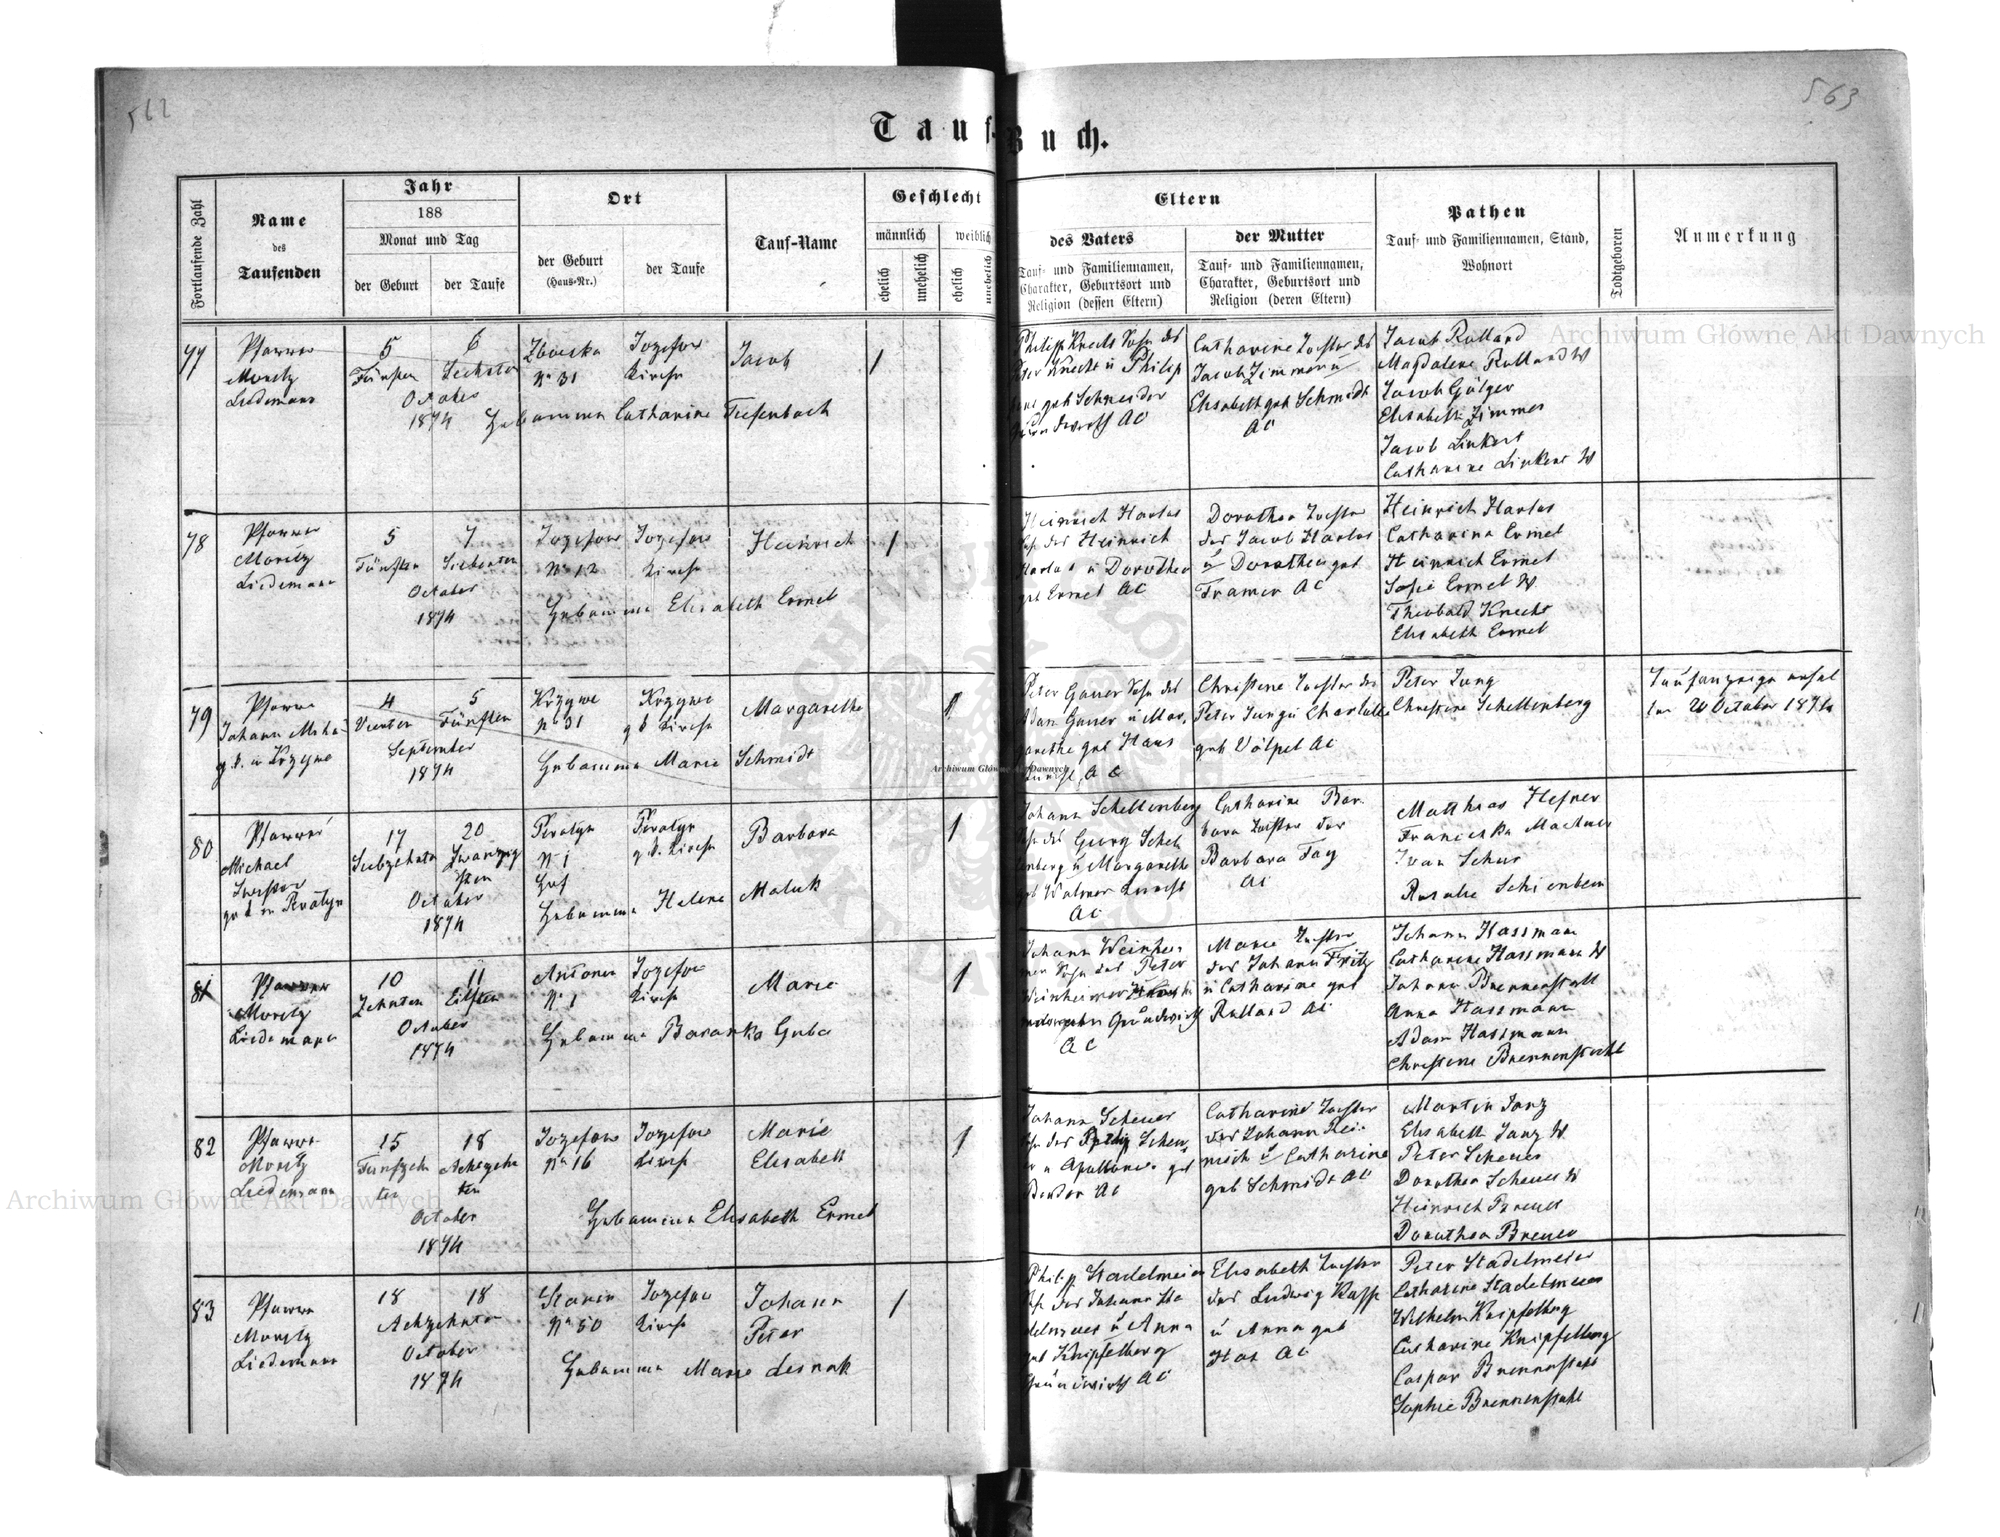 562
563
Tauf-Buch.
Fortlaufende Zahl
Name
des
Taufenden
Jahr
188
Monat und Tag
der Geburt
der Taufe
Ort
der Geburt
(Haus-Nr.)
der Taufe
Tauf-Name
Geschlecht
männlich
weiblich
ehelich
unehelich
ehelich
unehelich
Eltern
des Vaters
Tauf- und Familiennamen,
Charakter, Geburtsort und
Religion (dessen Eltern)
der Mutter
Tauf- und Familiennamen,
Charakter, Geburtsort und
Religion (deren Eltern)
Pathen
Tauf- und Familiennamen, Stand,
Wohnort
Todtgeboren
Anmerkung
77
Pfarrer
Moritz
Liedemann
5
Fünften
6
Sechsten
October
1874
No 31
Jozefow
Kirche
Jacob
1
Hebamme Catharine Tiefenbach
Philipp Knecht Sohn des
Peter Knecht u Philip
geb Schneider
AC
Catharine Tochter des
Jacob Zimmer u
Elisabeth geb Schmidt
AC
Jacob Rulland
Magdalene Rulland W
Jacob Gölger
Elisabeth Zimmer
Jacob Linkert
Catharine Linkert W
78
Pfarrer
Moritz
Liedemann
5
Fünften
7
Siebenten
October
1874
Jozefow
No 12
Jozefow
Kirche
Heinrich
1
Hebamme Elisabeth Ermel
Heinrich Harlos
Sohn des Heinrich
Harlos u Dorothea
geb Ermel AC
Dorothea Tochter
des Jacob Harlos
u Dorothea geb
Framer AC
Heinrich Harlos
Catharina Ermel
Heinrich Ermel
Sofie Ermel W
Theobald Knecht
Elisabeth Ermel
79
Pfarrer
Johann
g. k. in Krzywe
4
Vierten
5
Fünften
September
1874
Krzywe
No 31
Krzywe
g k Kirche
Margarethe
1
Hebamme Marie Schmidt
Peter Gauer Sohn des
Adam Gauer u Mar,
garethe geb Haus
AC
Christine Tochter des
Peter Jung u Charlotte
geb Völpel AC
Peter Jung
Christine Schellenberg
Taufanzeige erhal
ten 20 October 1874
80
Pfarrer
Michael
17
Siebzehnten
20
Zwanzig
sten
October
1874
Peratyn
No 1
Hof
Peratyn
g. k. Kirche
Barbara
1
Hebamme Helene Maluk
Johann Schellenberg
Sohn des Georg Schel
lenberg u Margarethe
geb Walmer
AC
Catharine Bar
bara Tochter der
Barbara Fay
AC
Matthias Hefner
Franciska
Ivan Schur
Rosalie Schienbein
81
Pfarrer
Moritz
Liedemann
10
Zehnten
11
Eilften
October
1874
No 1
Jozefow
Kirche
Marie
1
Hebamme Baranka Guba
Johann Weinhei
mer Sohn des Peter
Weinheimer
AC
Marie Tochter
des Johann Fritz
u Catharine geb
Rulland AC
Johann Hassmann
Catharine Hassmann W
Johann Brennenstuhl
Anna Hassmann
Adam Hassmann
Christine Brennenstuhl
82
Pfarrer
Moritz
Liedemann
15
Fünfzehn
ten
18
Achtzehn
ten
October
1874
Jozefow
No 16
Jozefow
Kirche
Marie
Elisabeth
1
Hebamme Elisabeth Ermel
Johann Scheuer
Sohn des Philip Scheu,
er u Apollonia geb
Bender AC
Catharine Tochter
des Johann Rei,
mich u Catharine
geb Schmidt AC
Martin Janz
Elisabeth Janz W
Peter Scheuer
Dorothea Scheuer W
Heinrich Breuer
Dorothea Breuer
83
Pfarrer
Moritz
Liedemann
18
18
Achtzehnten
October
1874
Stanin
No 50
Jozefow
Kirche
Johann
Peter
1
Hebamme Marie Lesnak
Philip Stadelmeier
Sohn des Johann Sta
delmeier u Anna
geb Knipfelberg
AC
Elisabeth Tochter
des Ludwig Rapp
u Anna geb
AC
Peter Stadelmeier
Catharine Stadelmeier
Wilhelm Knipfelberg
Catharine Knipfelberg
Caspar Brennenstuhl
Sophie Brennenstuhl
Archiwum Główne Akt Dawnych
Archiwum Główne Akt Dawnych
Archiwum Główne Akt Dawnych